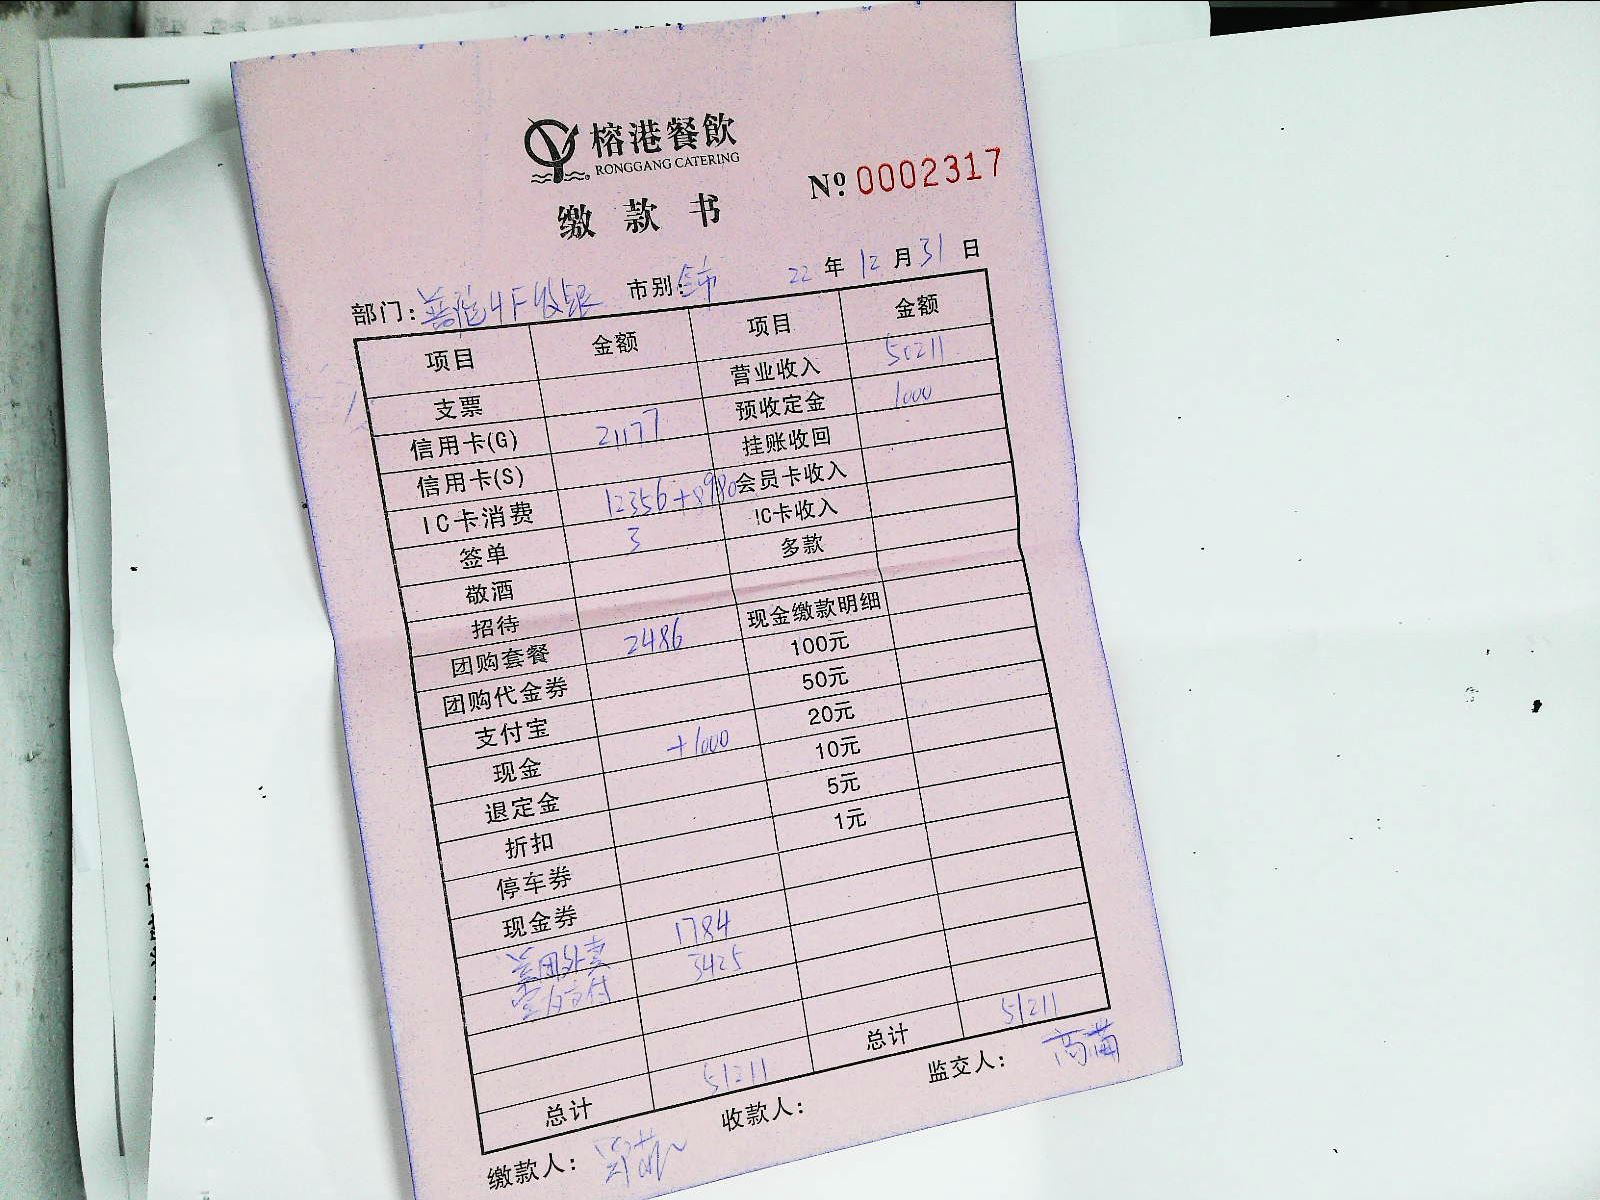 榕港餐飲
RONGGANG CATERING
缴款书
№ 0002317
部门: 普陀4F收银 市别: 全市 22年12月31日
项目 金额 项目 金额
支票 营业收入 50211
信用卡(G) 21177 预收定金 1000
信用卡(S) 挂账收回
IC卡消费 12356+8980 会员卡收入
签单 3 IC卡收入
敬酒 多款
招待
团购套餐 2486 现金缴款明细
团购代金券 100元
支付宝 50元
现金 +1000 20元
退定金 10元
折扣 5元
停车券 1元
现金券
美团外卖 1784
支付 3425
总计 51211 总计 51211
缴款人: 收款人: 监交人: 高苗